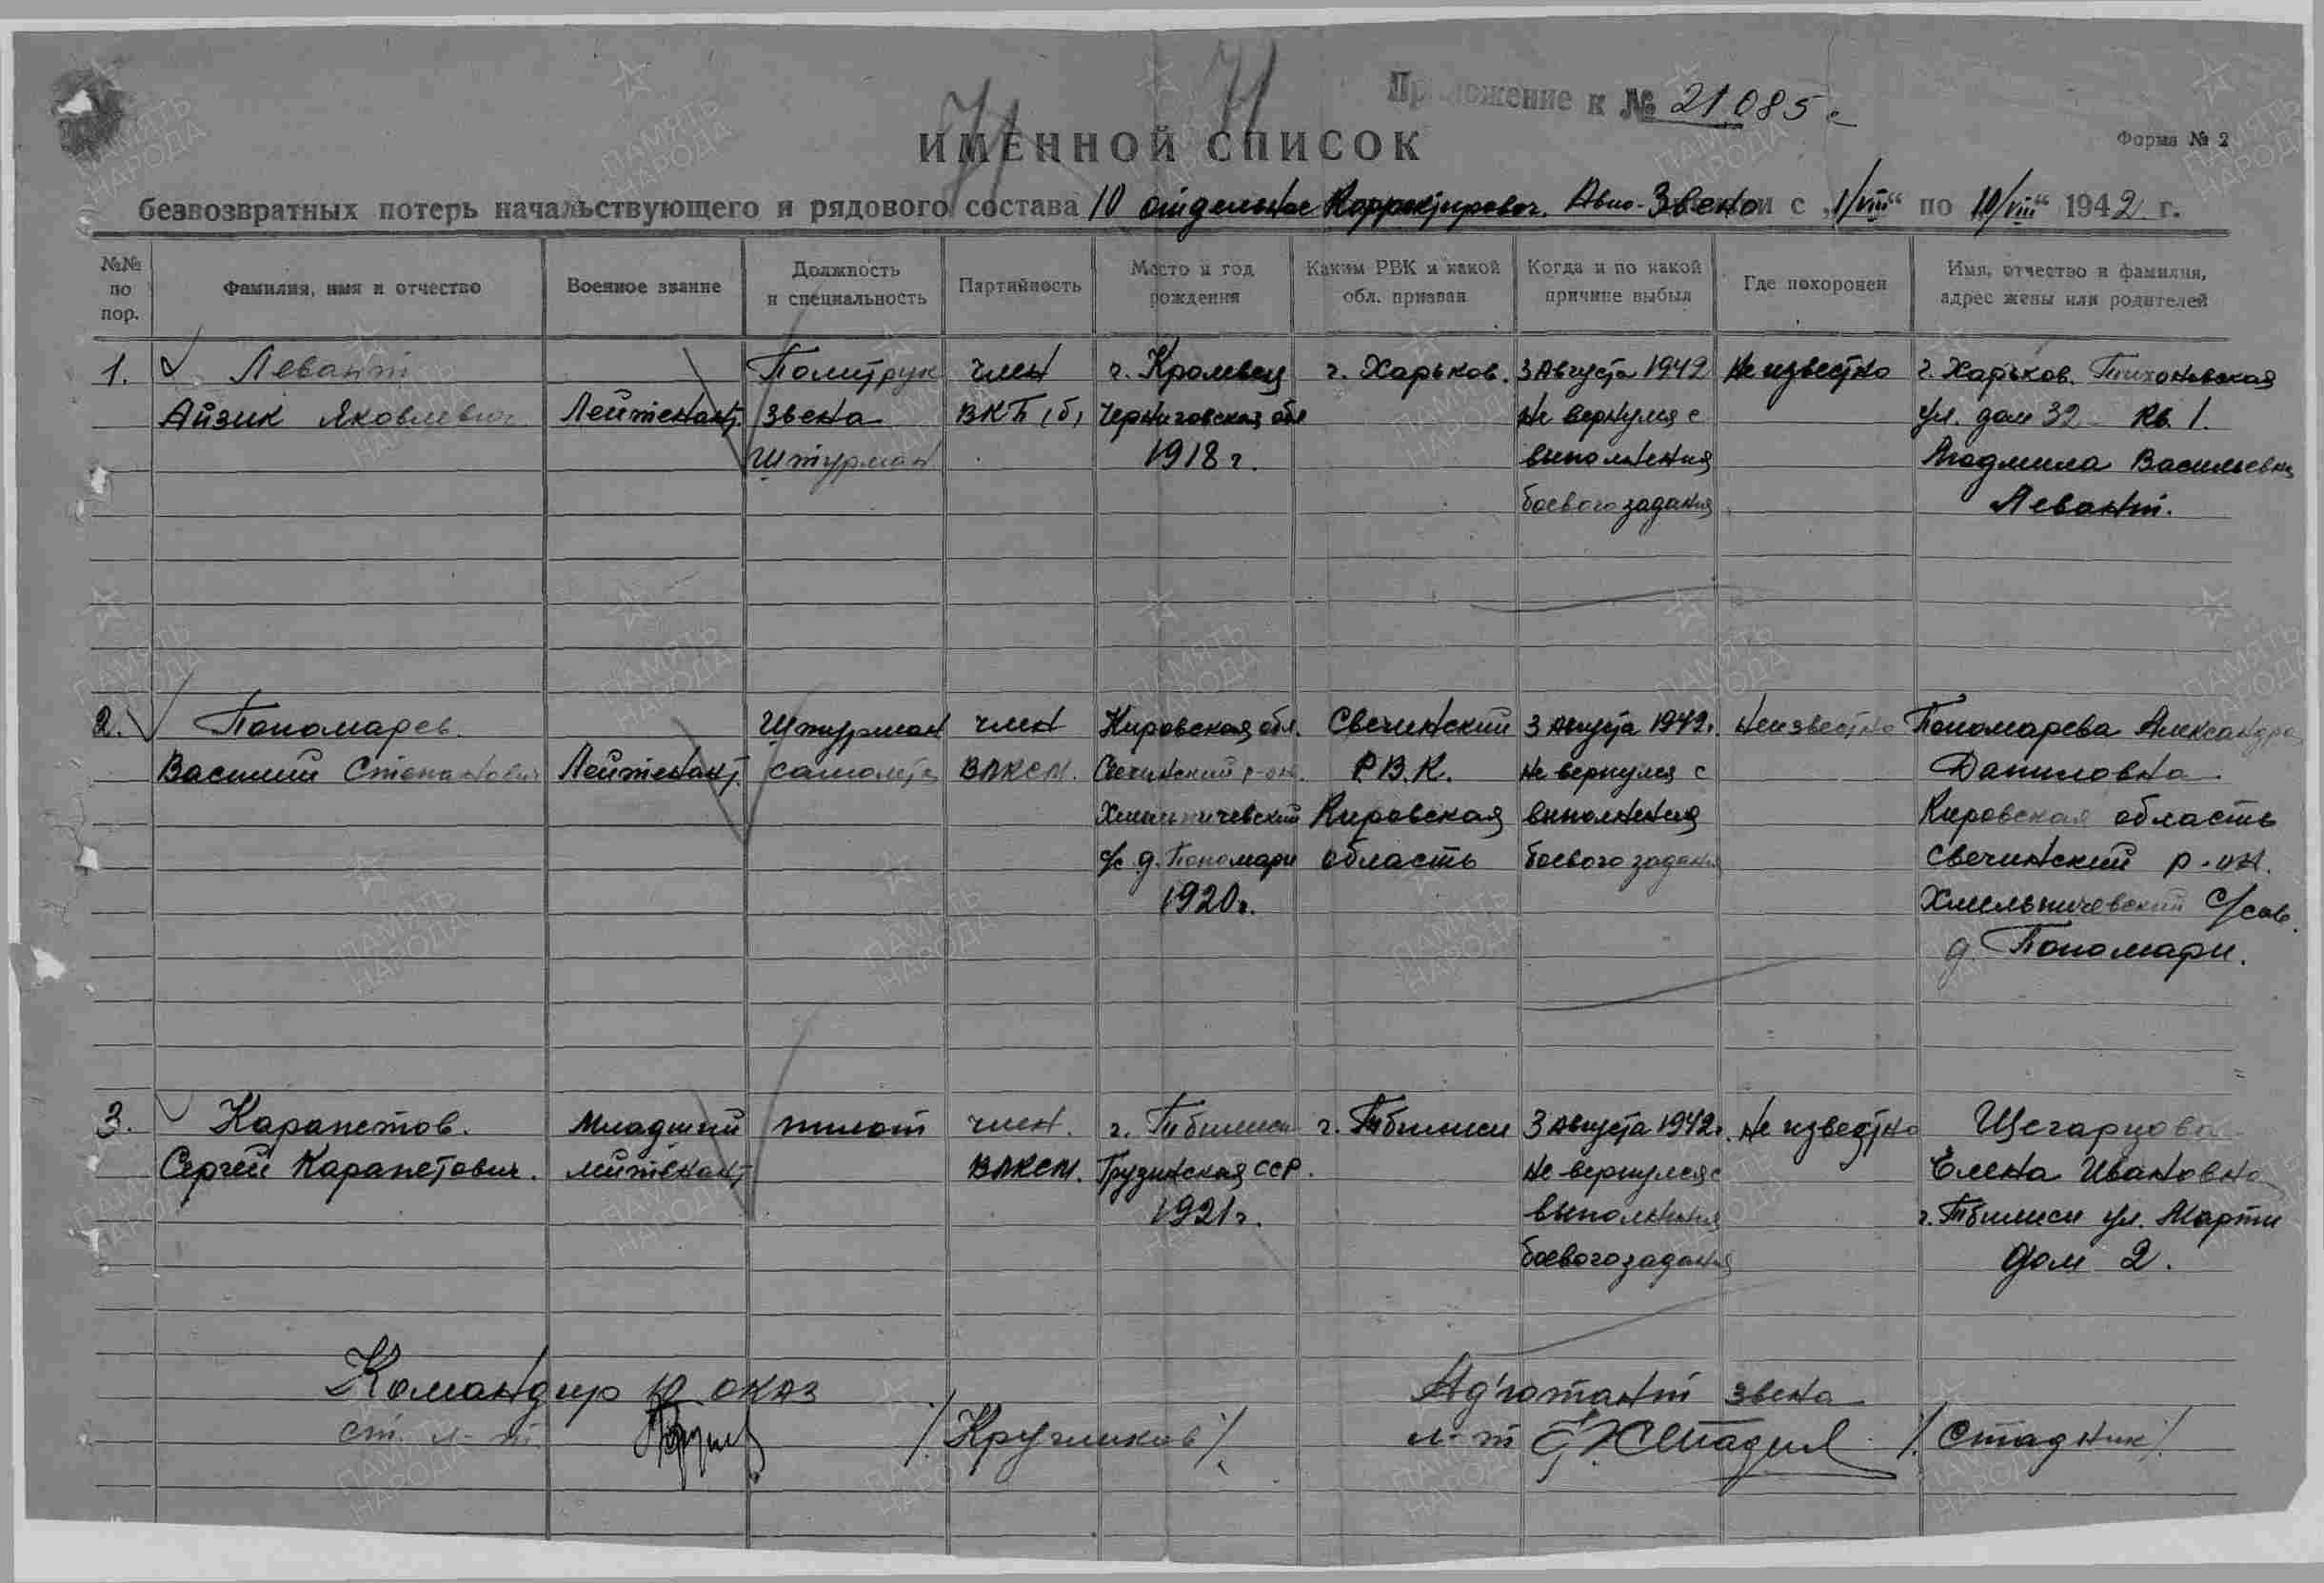 Приложение к № 21085с
ИМЕННОЙ СПИСОК
Форма № 2
безвозвратных потерь начальствующего и рядового состава 10 отдельное Корректировоч. Авио-Звено и с „1/VIII“ по 10/VIII“ 1942 г.
№№ по пор.
Фамилия, имя и отчество
Военное звание
Должность и специальность
Партийность
Место и год рождения
Каким РВК и какой обл. призван
Когда и по какой причине выбыл
Где похоронен
Имя, отчество и фамилия, адрес жены или родителей
1. Левант Политрук член г. Кролевец г. Харьков. 3 Августа 1942 Не известно г. Харьков. Тихоновская
Айзик Яковлевич Лейтенант. звена ВКП(б) Черниговская обл не вернулся с ул. дом 32 кв. 1.
Штурман 1918 г. выполнения Людмила Васильевна
боевого задания Левант.
2. Пономарев. Штурман член Кировская обл. Свечинский 3 Августа 1942г. Неизвестно Пономарева Александра
Василий Степанович Лейтенант. самолета ВЛКСМ. Свечинский р-он. Р.В.К. не вернулся с Даниловна
Кировская выполнения Кировская область
с/с д. Пономари область боевого задания Свечинский р-он.
1920г. с/сов.
д. Пономари.
3. Карапетов. Младший пилот член. г. Тбилиси г. Тбилиси 3 Августа 1942г. Не известно
Сергей Карапетович. лейтенант ВЛКСМ. Грузинская ССР. не вернулся с Елена Ивановна
1921г. выполнения г. Тбилиси ул. Марти
боевого задания дом 2.
Командир 10 ОКАЗ Ад'ютант звена
ст. л-т. /Кругликов/ л-т /Стадник/
ПАМЯТЬ НАРОДА